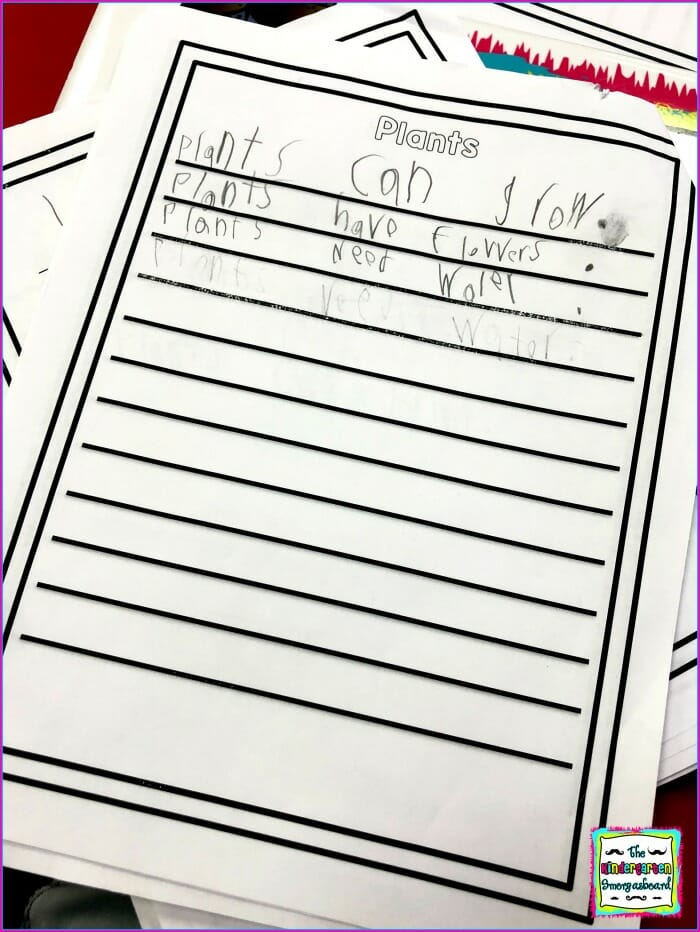 Plants
Plants can grow.
Plants have Flowers.
Plants Need Water.
Plants Need Water.
The
Kindergarten
Smorgasboard